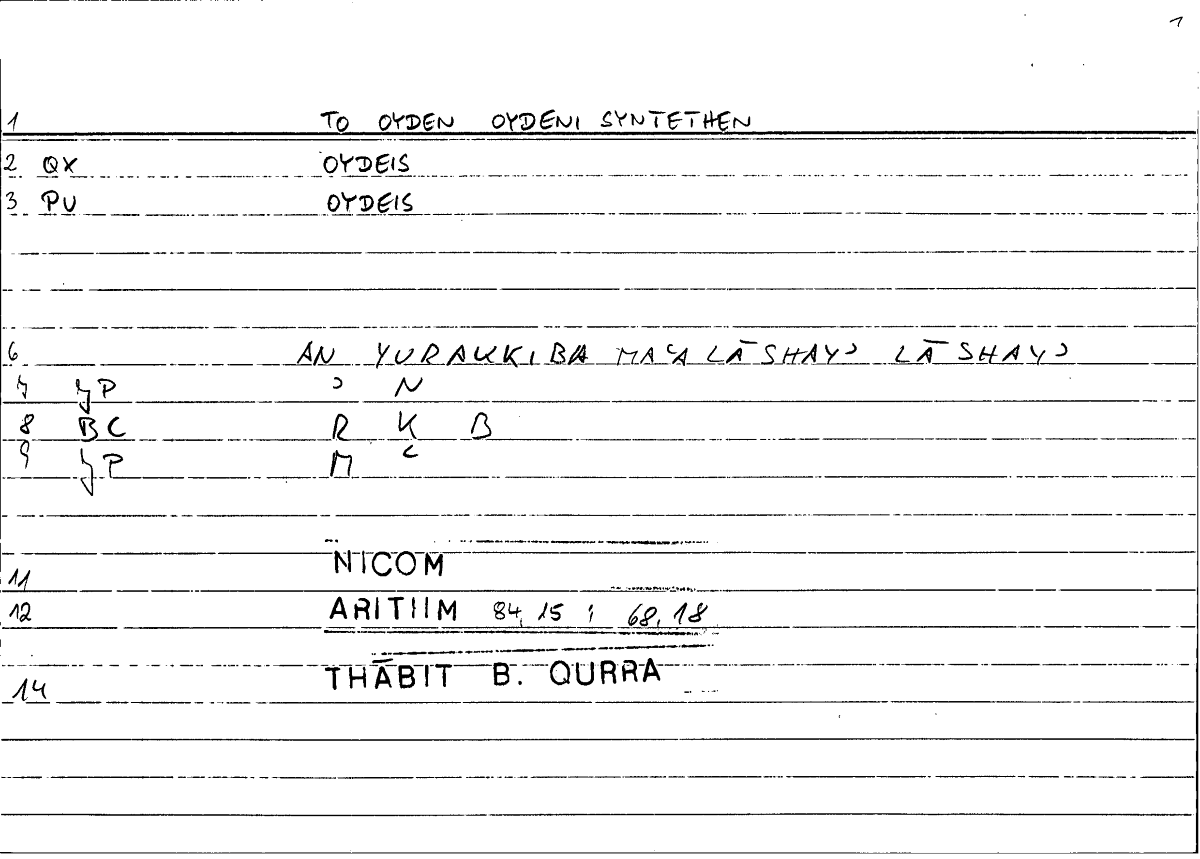 1
1 TO OYDEN OYDENI SYNTETHEN
2 QX OYDEIS
3 PU OYDEIS
6 AN YURAKKIBA MAʿA LĀ SHAYʾ LĀ SHAYʾ
7 YP ʾ N
8 BC R K B
9 YP M ʿ
NICOM
11
12 ARITIIM 84,15 ; 68,18
14 THĀBIT B. QURRA